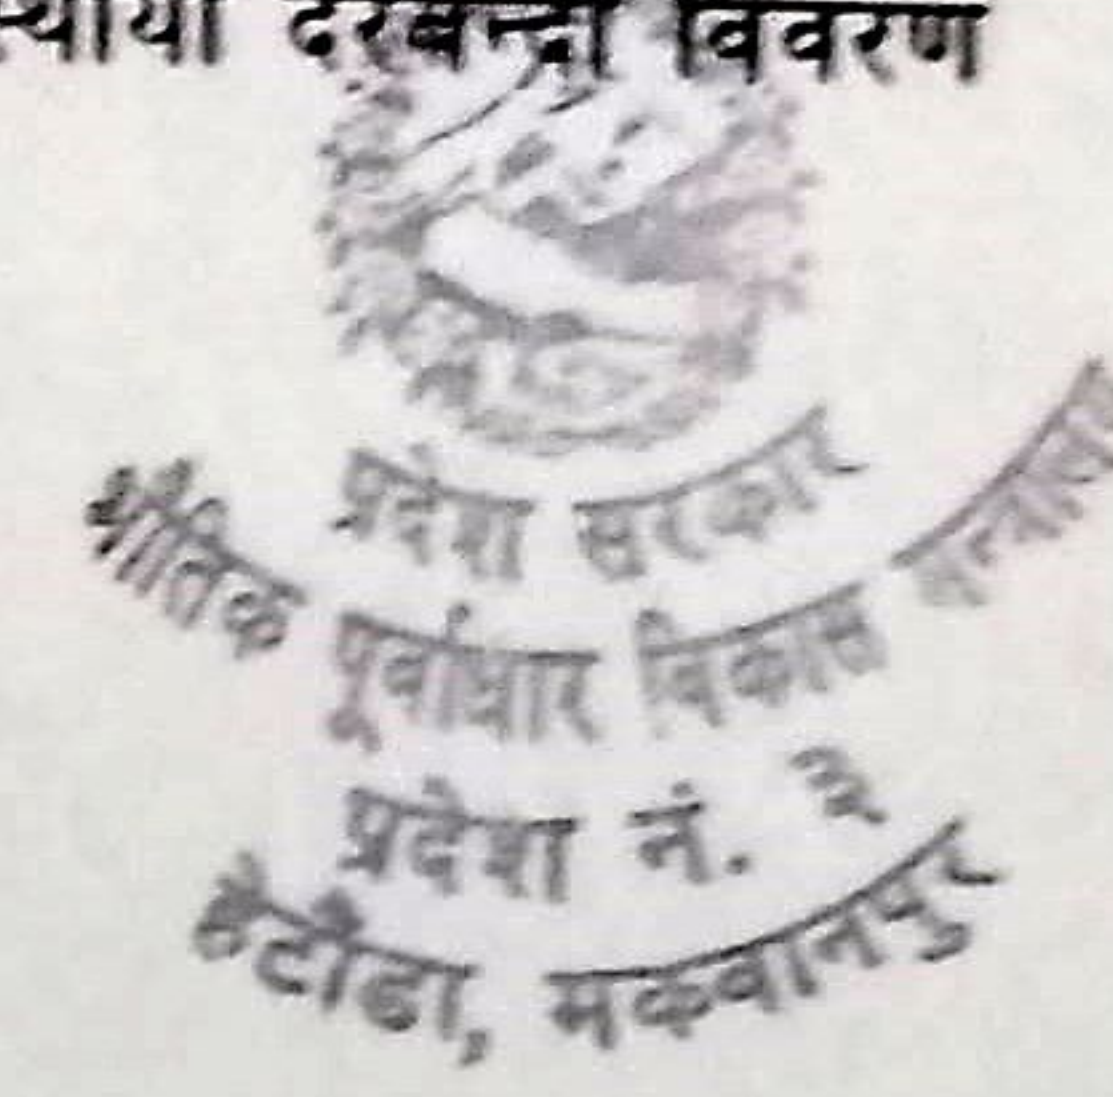 स्थायी दरबन्दी विवरण
प्रदेश सरकार
भौतिक पूर्वाधार विकास मन्त्रालय
प्रदेश नं. ३
हेटौडा, मकवानपुर